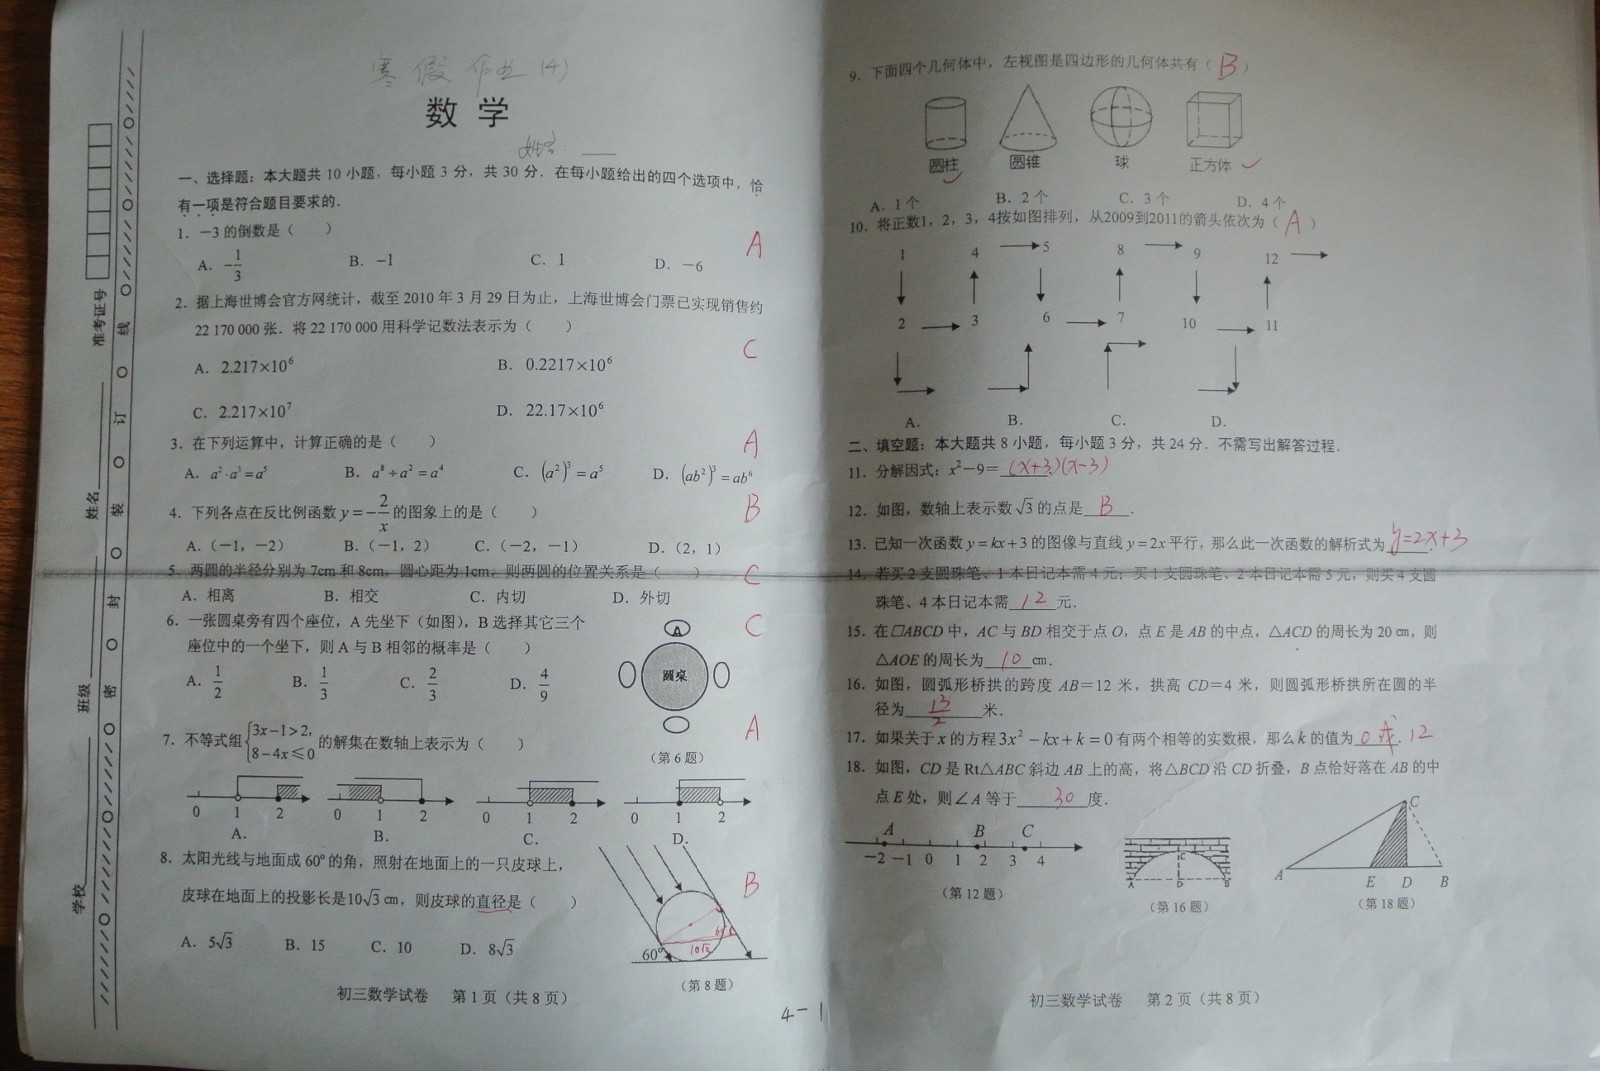 寒假作业(4)
数 学
姓名: ___
一、选择题：本大题共 10 小题，每小题 3 分，共 30 分．在每小题给出的四个选项中，恰
有一项是符合题目要求的．
1．－3 的倒数是（　　） A
A．-1/3　B．-1　C．1　D．－6
2．据上海世博会官方网统计，截至 2010 年 3 月 29 日为止，上海世博会门票已实现销售约
22 170 000 张．将 22 170 000 用科学记数法表示为（　　） C
A．2.217×10⁶　B．0.2217×10⁶
C．2.217×10⁷　D．22.17×10⁶
3．在下列运算中，计算正确的是（　　） A
A．a²·a³=a⁵　B．a⁸÷a²=a⁴　C．(a²)³=a⁵　D．(ab²)³=ab⁶
4．下列各点在反比例函数 y=-2/x 的图象上的是（　　） B
A．(－1，－2)　B．(－1，2)　C．(－2，－1)　D．(2，1)
5．两圆的半径分别为 7cm 和 8cm，圆心距为 1cm，则两圆的位置关系是（　　） C
A．相离　B．相交　C．内切　D．外切
6．一张圆桌旁有四个座位，A 先坐下（如图），B 选择其它三个 C
座位中的一个坐下，则 A 与 B 相邻的概率是（　　）
A．1/2　B．1/3　C．2/3　D．4/9
A
圆桌
（第 6 题）
7．不等式组{3x-1>2, 8-4x≤0 的解集在数轴上表示为（　　） A
0 1 2　0 1 2　0 1 2　0 1 2
A.　B.　C.　D.
8．太阳光线与地面成 60° 的角，照射在地面上的一只皮球上，
皮球在地面上的投影长是10√3 cm，则皮球的直径是（　　） B
A．5√3　B．15　C．10　D．8√3
60°
（第 8 题）
初三数学试卷　第 1 页（共 8 页）
4-1
学校
班级
姓名
准考证号
密 封 装 订 线
9．下面四个几何体中，左视图是四边形的几何体共有（ B ）
圆柱　圆锥　球　正方体
A．1 个　B．2 个　C．3 个　D．4 个
10．将正数1，2，3，4按如图排列，从2009到2011的箭头依次为（ A ）
1 4 5 8 9 12
2 3 6 7 10 11
A.　B.　C.　D.
二、填空题：本大题共 8 小题，每小题 3 分，共 24 分．不需写出解答过程．
11．分解因式：x²－9＝(x+3)(x-3)
12．如图，数轴上表示数 √3 的点是 B ．
13．已知一次函数 y=kx+3 的图像与直线 y=2x 平行，那么此一次函数的解析式为 y=2x+3 ．
14．若买 2 支圆珠笔、1 本日记本需 4 元；买 1 支圆珠笔、2 本日记本需 5 元，则买 4 支圆
珠笔、4 本日记本需 12 元．
15．在□ABCD 中，AC 与 BD 相交于点 O，点 E 是 AB 的中点，△ACD 的周长为 20 cm，则
△AOE 的周长为 10 cm．
16．如图，圆弧形桥拱的跨度 AB＝12 米，拱高 CD＝4 米，则圆弧形桥拱所在圆的半
径为 13/2 米．
17．如果关于 x 的方程 3x²-kx+k=0 有两个相等的实数根，那么 k 的值为 0或12 ．
18．如图，CD 是 Rt△ABC 斜边 AB 上的高，将△BCD 沿 CD 折叠，B 点恰好落在 AB 的中
点 E 处，则∠A 等于 30 度．
A B C
-2 -1 0 1 2 3 4
（第 12 题）
A D B C
（第 16 题）
A E D B C
（第 18 题）
初三数学试卷　第 2 页（共 8 页）